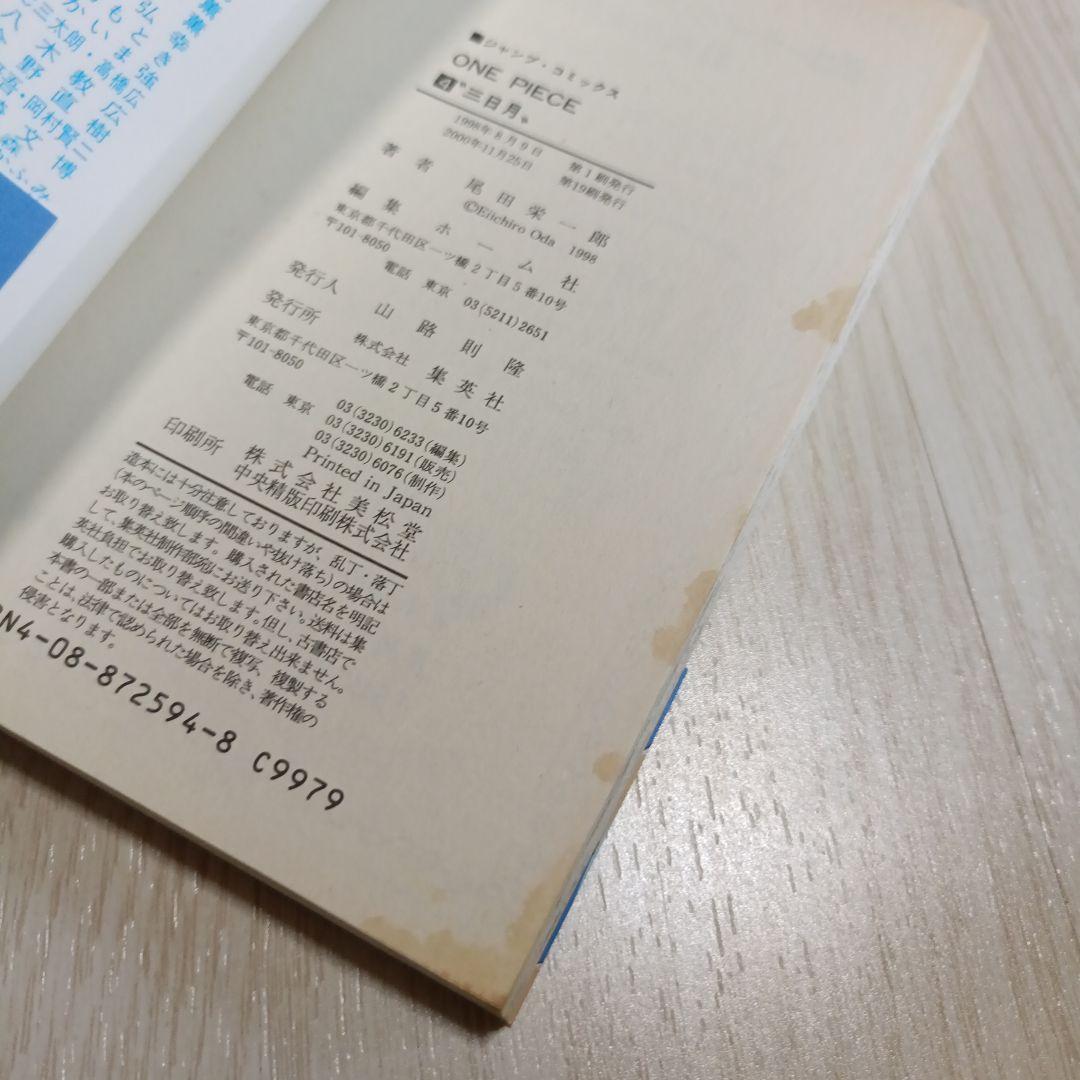 ■ジャンプ・コミックス
ONE PIECE
4 "三日月"
1998年8月9日 第1刷発行
2000年11月25日 第19刷発行
著者 尾田栄一郎
©Eiichiro Oda 1998
編集 ホーム社
東京都千代田区一ツ橋2丁目5番10号
〒101-8050
電話 東京 03(5211)2651
発行人 山路則隆
発行所 株式会社 集英社
東京都千代田区一ツ橋2丁目5番10号
〒101-8050
電話 東京 03(3230)6233(編集)
03(3230)6191(販売)
03(3230)6076(制作)
Printed in Japan
印刷所 株式会社美松堂
中央精版印刷株式会社
造本には十分注意しておりますが、乱丁・落丁
(本のページ順序の間違いや抜け落ち)の場合は
お取り替え致します。購入された書店名を明記
して、集英社制作部宛にお送り下さい。送料は集
英社負担でお取り替え致します。但し、古書店で
購入したものについてはお取り替え出来ません。
本書の一部または全部を無断で複写、複製する
ことは、法律で認められた場合を除き、著作権の
侵害となります。
BN4-08-872594-8 C9979
幸弘
き と も
強 ま い
広・高橋
三太朗
樹広教木八
直野
二・岡村賢
吾
博文
ふみ